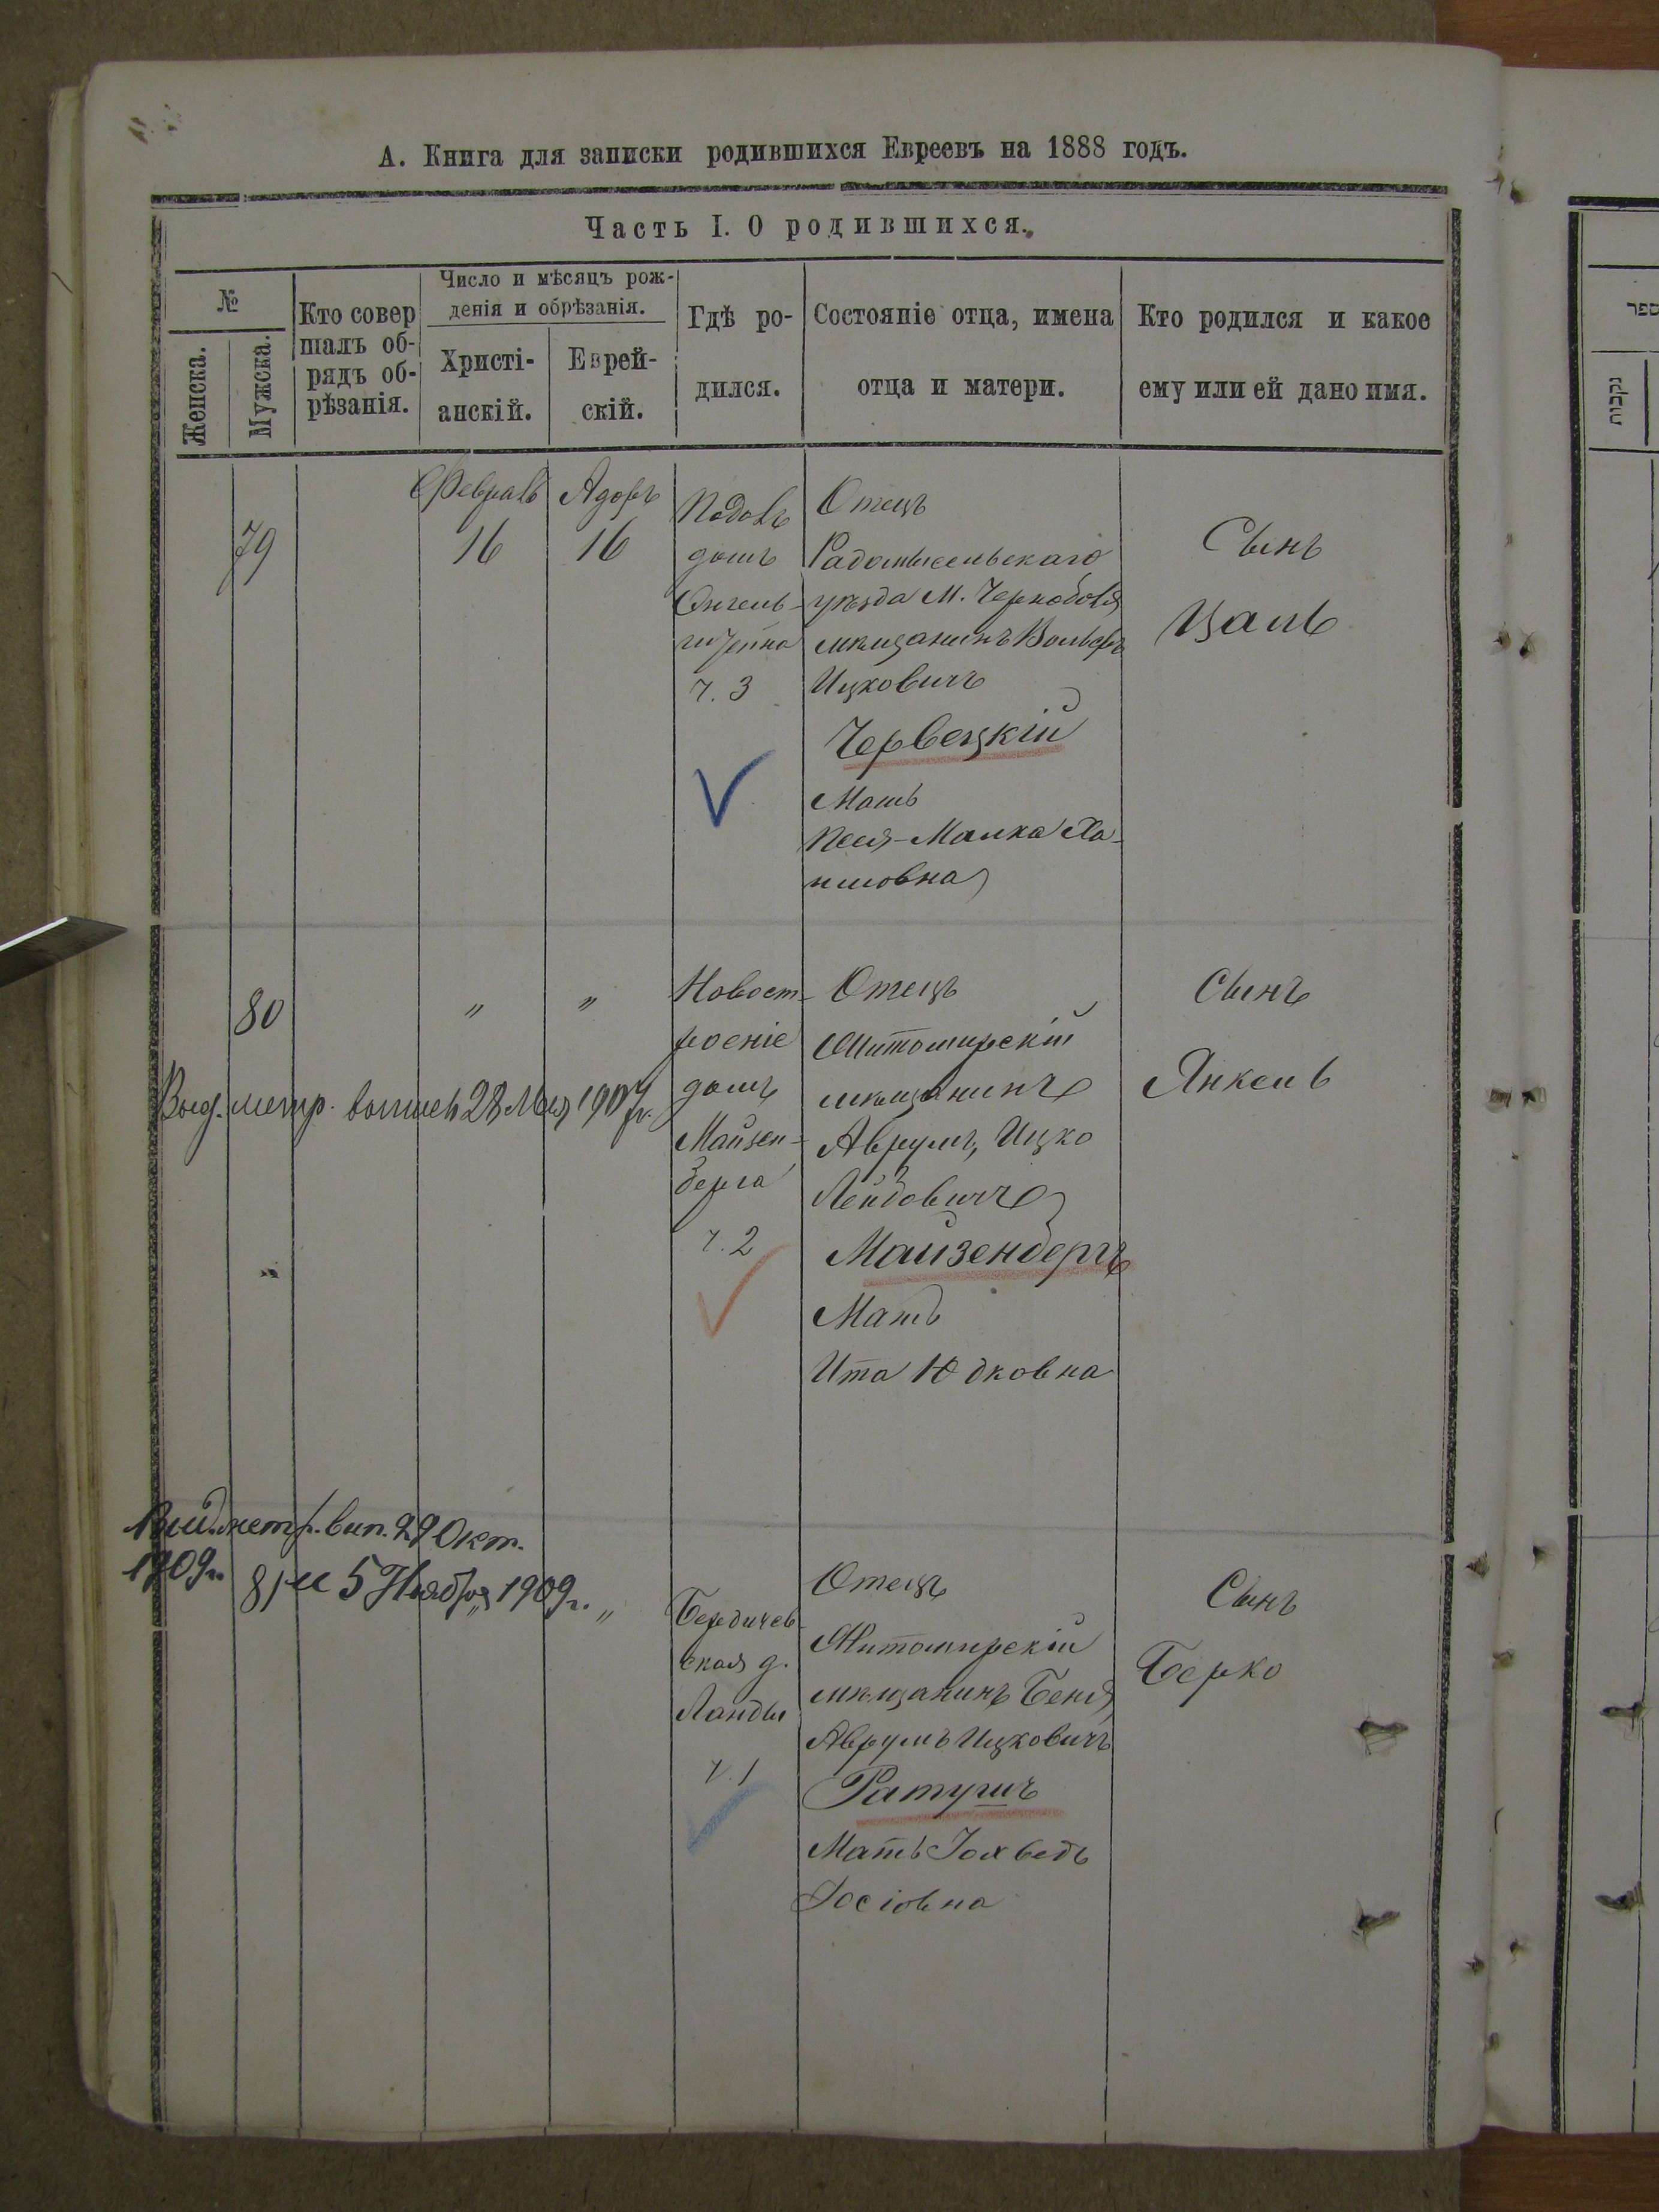 А. Книга для записки родившихся Евреевъ на 1888 годъ.
Часть I. О родившихся.
№
Женска.
Мужска.
Кто совер
шалъ об-
рядъ об-
рѣзанія.
Число и мѣсяцъ рож-
денія и обрѣзанія.
Христі-
анскій.
Еврей-
скій.
Гдѣ ро-
дился.
Состояніе отца, имена
отца и матери.
Кто родился и какое
ему или ей дано имя.
79
Февраль
16
Адаръ
16
Подолъ
домъ
Енгель-
штейна
ч. 3
Отецъ
Радомысельскаго
уѣзда М. Чернобыля
мѣщанинъ Вольфъ
Ицковичъ
Червецкій
Мать
Песя-Малка Ха-
имовна
Сынъ
Цаль
80
"
"
Новост-
роеніе
домъ
Майзен-
берга
ч. 2
Отецъ
Житомирскій
мѣщанинъ
Аврумъ, Ицко
Лейбовичъ
Майзенбергъ
Мать
Ита Юдковна
Сынъ
Янкель
Выд. метр. выпись 28 Мая 1907 г.
Выд. метр. вып. 29 Окт.
1909 г.
и 5 Ноября 1909 г.
81
"
"
Бердичев-
ская д.
Ланды
ч. 1
Отецъ
Житомирскій
мѣщанинъ Беня,
Аврумъ Ицковичъ
Ратушъ
Мать Іохведъ
Іосіовна
Сынъ
Берко
ספר
נקבות